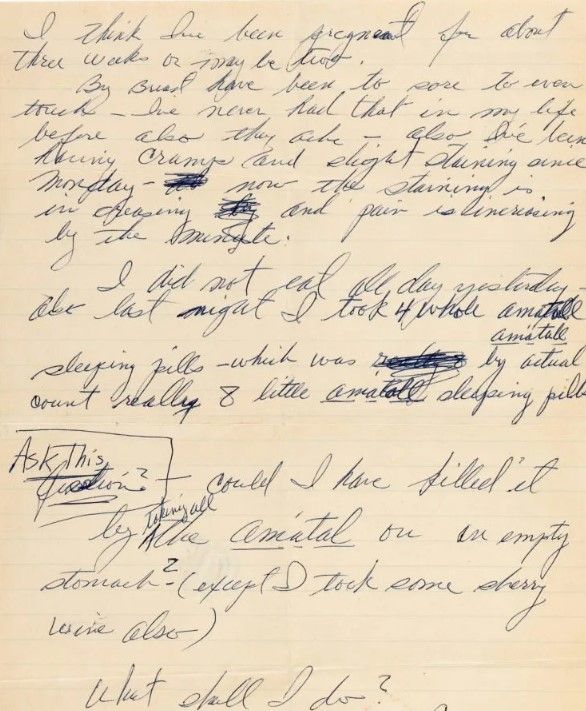 I think I've been pregnant for about
three weeks or may be two.
My Breast have been to sore to even
touch – I've never had that in my life
before also they ache – also I've been
having cramps and slight staining since
Monday – now the staining is
increasing and pain is increasing
by the minute.
I did not eat all day yesterday –
also last night I took 4 whole amatall
amatall
sleeping pills – which was by actual
count really 8 little amatall sleeping pills
Ask This
question? – could I have killed it
by taking all the amatal on an empty
stomach? (except I took some sherry
wine also)
What shall I do?